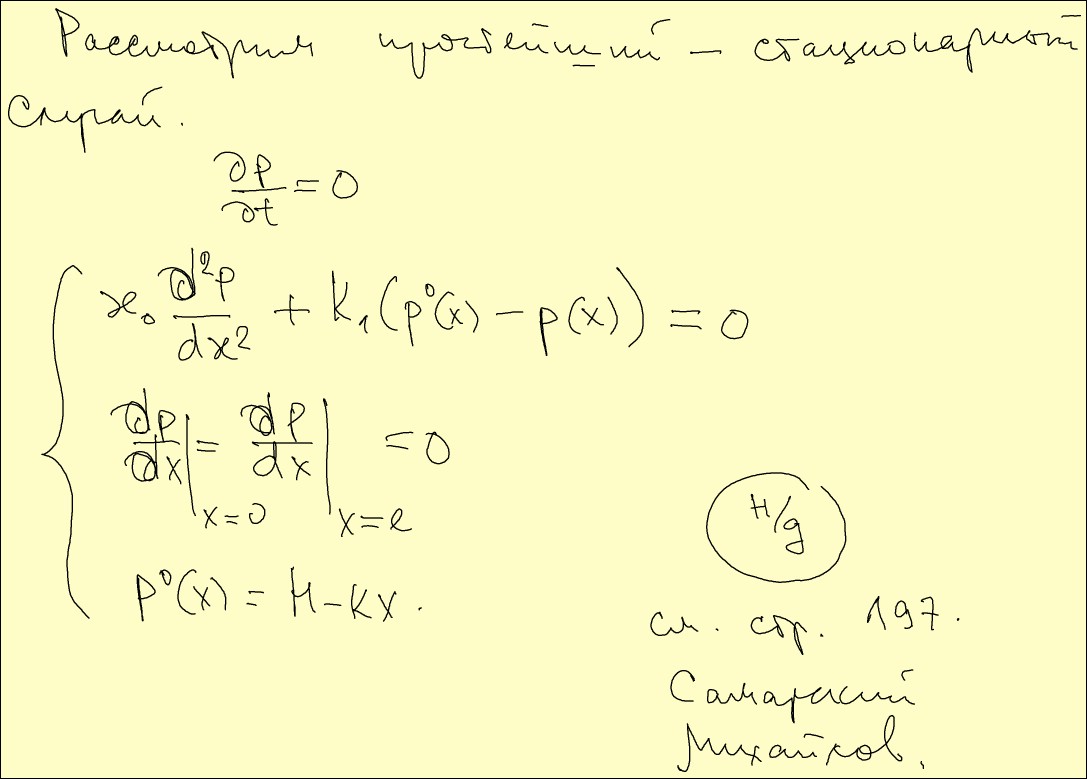 Рассмотрим простейший – стационарный
случай.
∂p/∂t = 0
æ₀ d²p/dx² + k₁(p⁰(x) – p(x)) = 0
dp/dx|ₓ₌₀ = dp/dx|ₓ₌ₑ = 0
H/g
p⁰(x) = H – kx.
см. стр. 197.
Самарский
Михайлов.